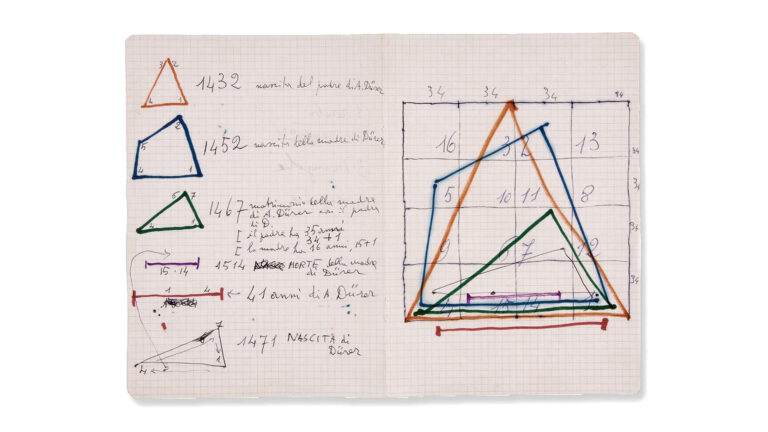 3 2
4 1
1432 nascita del padre di A. Dürer
2
5
4 1
1452 nascita della madre di Dürer
6 7
4 1
1467 matrimonio della madre
di A. Dürer con il padre
di D.
[ il padre ha 35 anni
34+1
[ la madre ha 16 anni, 15+1
15·14
1514 MORTE della madre
di Dürer
1 4
← 41 anni di A. Dürer
7
1
4
1471 NASCITA di
Dürer
34 34 34 34
16 3 2 13
34
5 10 11 8
34
9 6 7 12
34
15 14
34